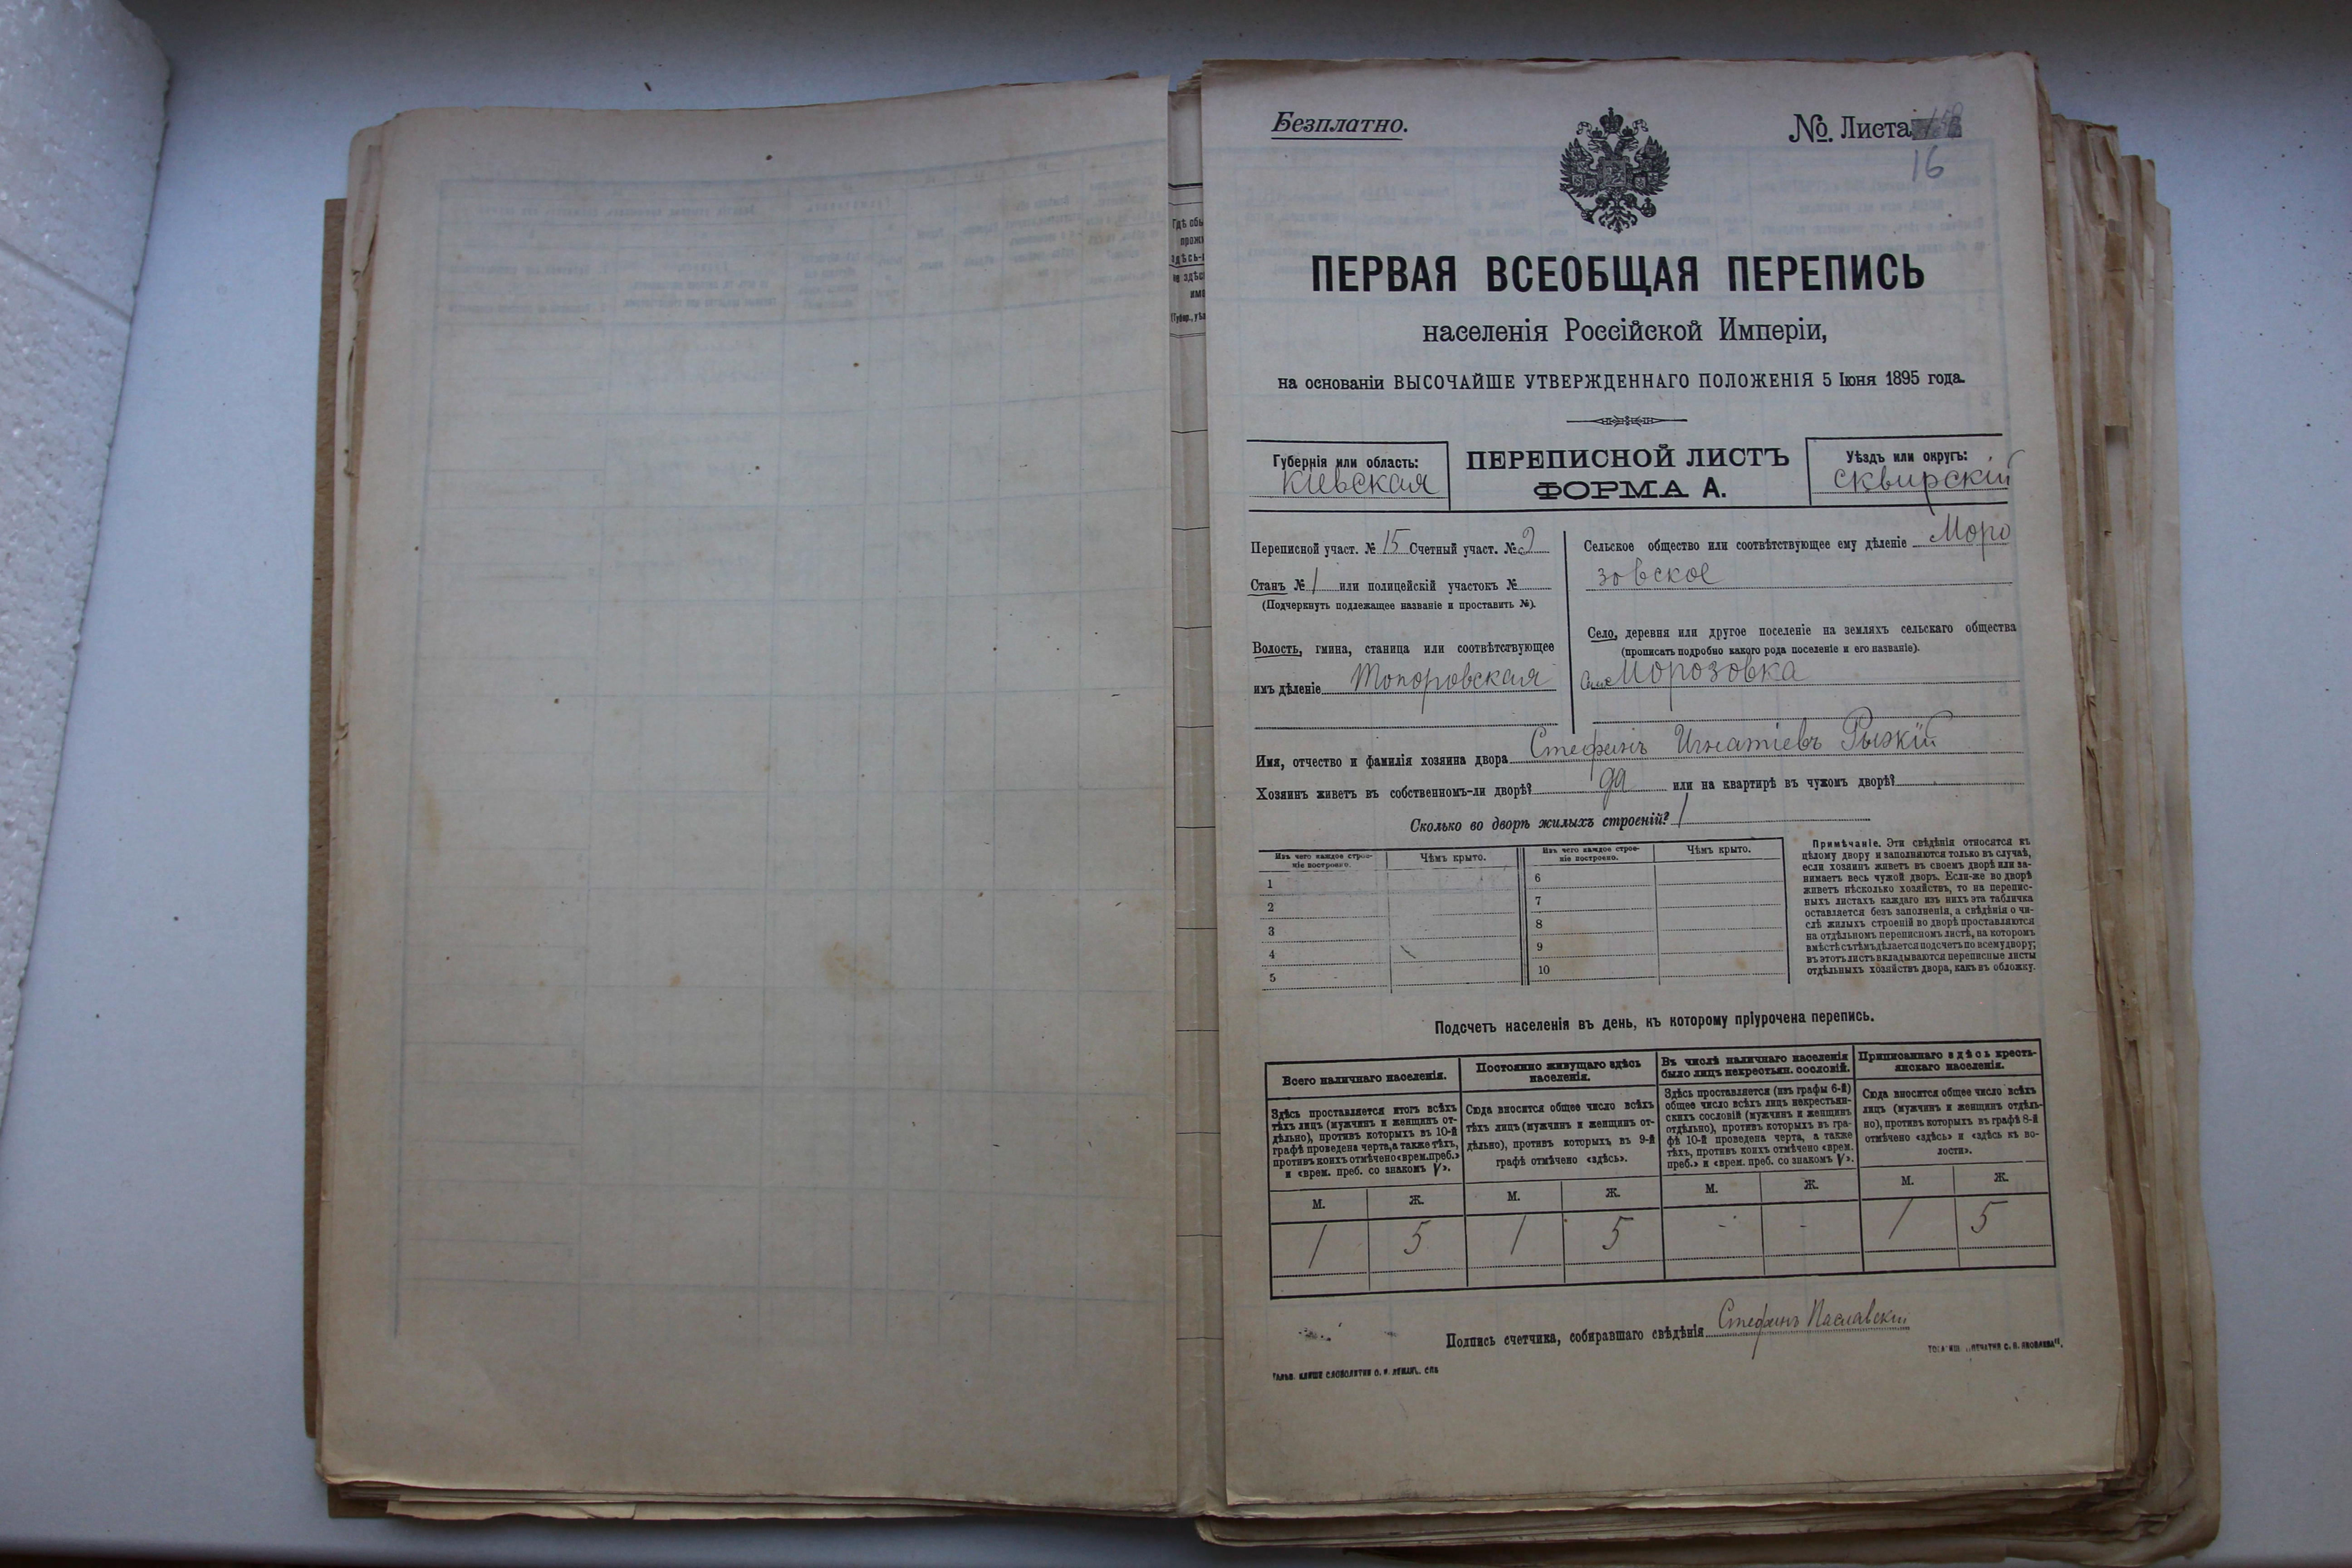 Безплатно.
№ Листа
16
ПЕРВАЯ ВСЕОБЩАЯ ПЕРЕПИСЬ
населенія Россійской Имперіи,
на основаніи ВЫСОЧАЙШЕ УТВЕРЖДЕННАГО ПОЛОЖЕНІЯ 5 Іюня 1895 года.
Губернія или область:
Кіевская
ПЕРЕПИСНОЙ ЛИСТЪ
ФОРМА А.
Уѣздъ или округъ:
Сквирскій
Переписной участ. № 15 Счетный участ. № 2
Станъ № 1 или полицейскій участокъ №
(Подчеркнуть подлежащее названіе и проставить №).
Волость, гмина, станица или соотвѣтствующее
имъ дѣленіе Топоровская
Сельское общество или соотвѣтствующее ему дѣленіе Моро
зовское
Село, деревня или другое поселеніе на земляхъ сельскаго общества
(прописать подробно какого рода поселеніе и его названіе).
Село Морозовка
Имя, отчество и фамилія хозяина двора Стефанъ Игнатіевъ Рыжкій
Хозяинъ живетъ въ собственномъ-ли дворѣ? да или на квартирѣ въ чужомъ дворѣ?
Сколько во дворѣ жилыхъ строеній? 1
Изъ чего каждое строе-
ніе построено.
Чѣмъ крыто.
Изъ чего каждое строе-
ніе построено.
Чѣмъ крыто.
1
2
3
4
5
6
7
8
9
10
Примѣчаніе. Эти свѣдѣнія относятся къ
цѣлому двору и заполняются только въ случаѣ,
если хозяинъ живетъ въ своемъ дворѣ или за-
нимаетъ весь чужой дворъ. Если-же во дворѣ
живетъ нѣсколько хозяйствъ, то на перепис-
ныхъ листахъ каждаго изъ нихъ эта табличка
оставляется безъ заполненія, а свѣдѣнія о чи-
слѣ жилыхъ строеній во дворѣ проставляются
на отдѣльномъ переписномъ листѣ, на которомъ
вмѣстѣ съ тѣмъ дѣлается подсчетъ по всему двору;
въ этотъ листъ вкладываются переписные листы
отдѣльныхъ хозяйствъ двора, какъ въ обложку.
Подсчетъ населенія въ день, къ которому пріурочена перепись.
Всего наличнаго населенія.
Здѣсь проставляется итогъ всѣхъ
тѣхъ лицъ (мужчинъ и женщинъ от-
дѣльно), противъ которыхъ въ 10-й
графѣ проведена черта, а также тѣхъ,
противъ коихъ отмѣчено «врем. преб.»
и «врем. преб. со знакомъ V».
Постоянно живущаго здѣсь
населенія.
Сюда вносится общее число всѣхъ
тѣхъ лицъ (мужчинъ и женщинъ от-
дѣльно), противъ которыхъ въ 9-й
графѣ отмѣчено «здѣсь».
Въ числѣ наличнаго населенія
было лицъ некрестьян. сословій.
Здѣсь проставляется (изъ графы 6-й)
общее число всѣхъ лицъ некрестьян-
скихъ сословій (мужчинъ и женщинъ
отдѣльно), противъ которыхъ въ гра-
фѣ 10-й проведена черта, а также
тѣхъ, противъ коихъ отмѣчено «врем.
преб.» и «врем. преб. со знакомъ V».
Приписаннаго здѣсь кресть-
янскаго населенія.
Сюда вносится общее число всѣхъ
лицъ (мужчинъ и женщинъ отдѣль-
но), противъ которыхъ въ графѣ 8-й
отмѣчено «здѣсь» и «здѣсь въ во-
лости».
М. Ж. М. Ж. М. Ж. М. Ж.
1 5 1 5 - - 1 5
Подпись счетчика, собиравшаго свѣдѣнія Стефанъ Паславскій